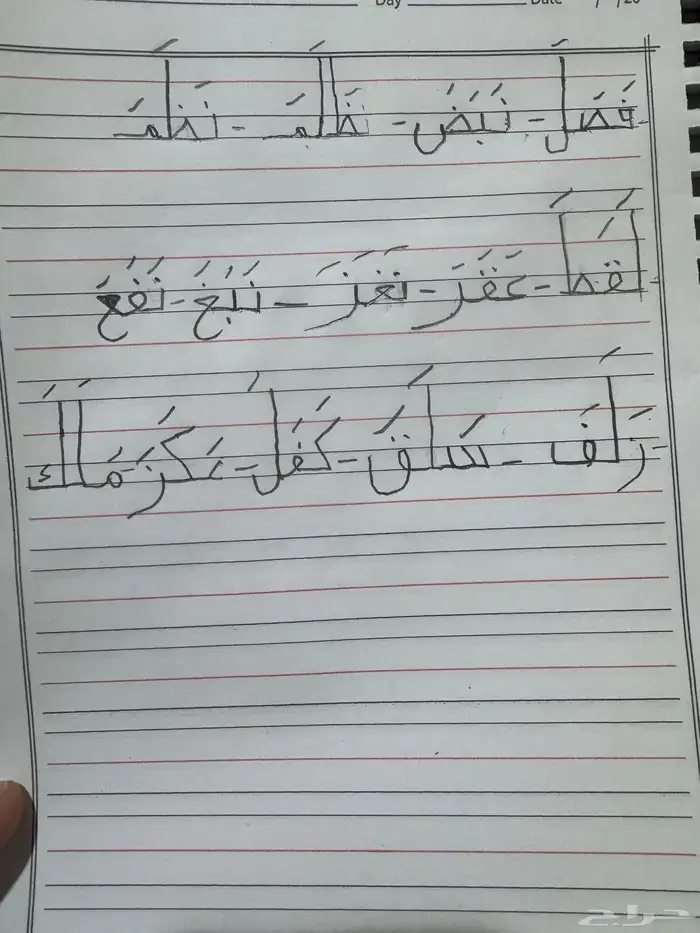 Day Date / /20
فَصَلَ - نَبَضَ - ظَلَمَ - نَظَمَ
لَقَطَ - عَقَرَ - نَغَزَ - نَبَغَ - نَقَعَ
زَلَفَ - سَلَقَ - كَفَلَ - عَكَرَ مَالَكَ
حراج